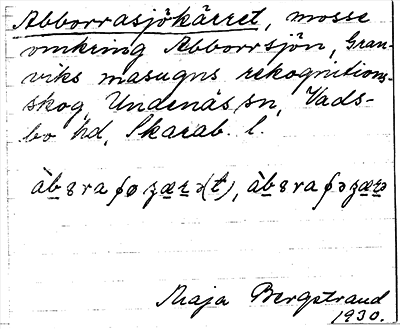 Abborrasjökärret, mosse
omkring Abborrsjön, Gran-
viks masugns rekognitions-
skog, Undenäs sn, Vads-
bo hd, Skarab. l.
Maja Bergstrand
1930.